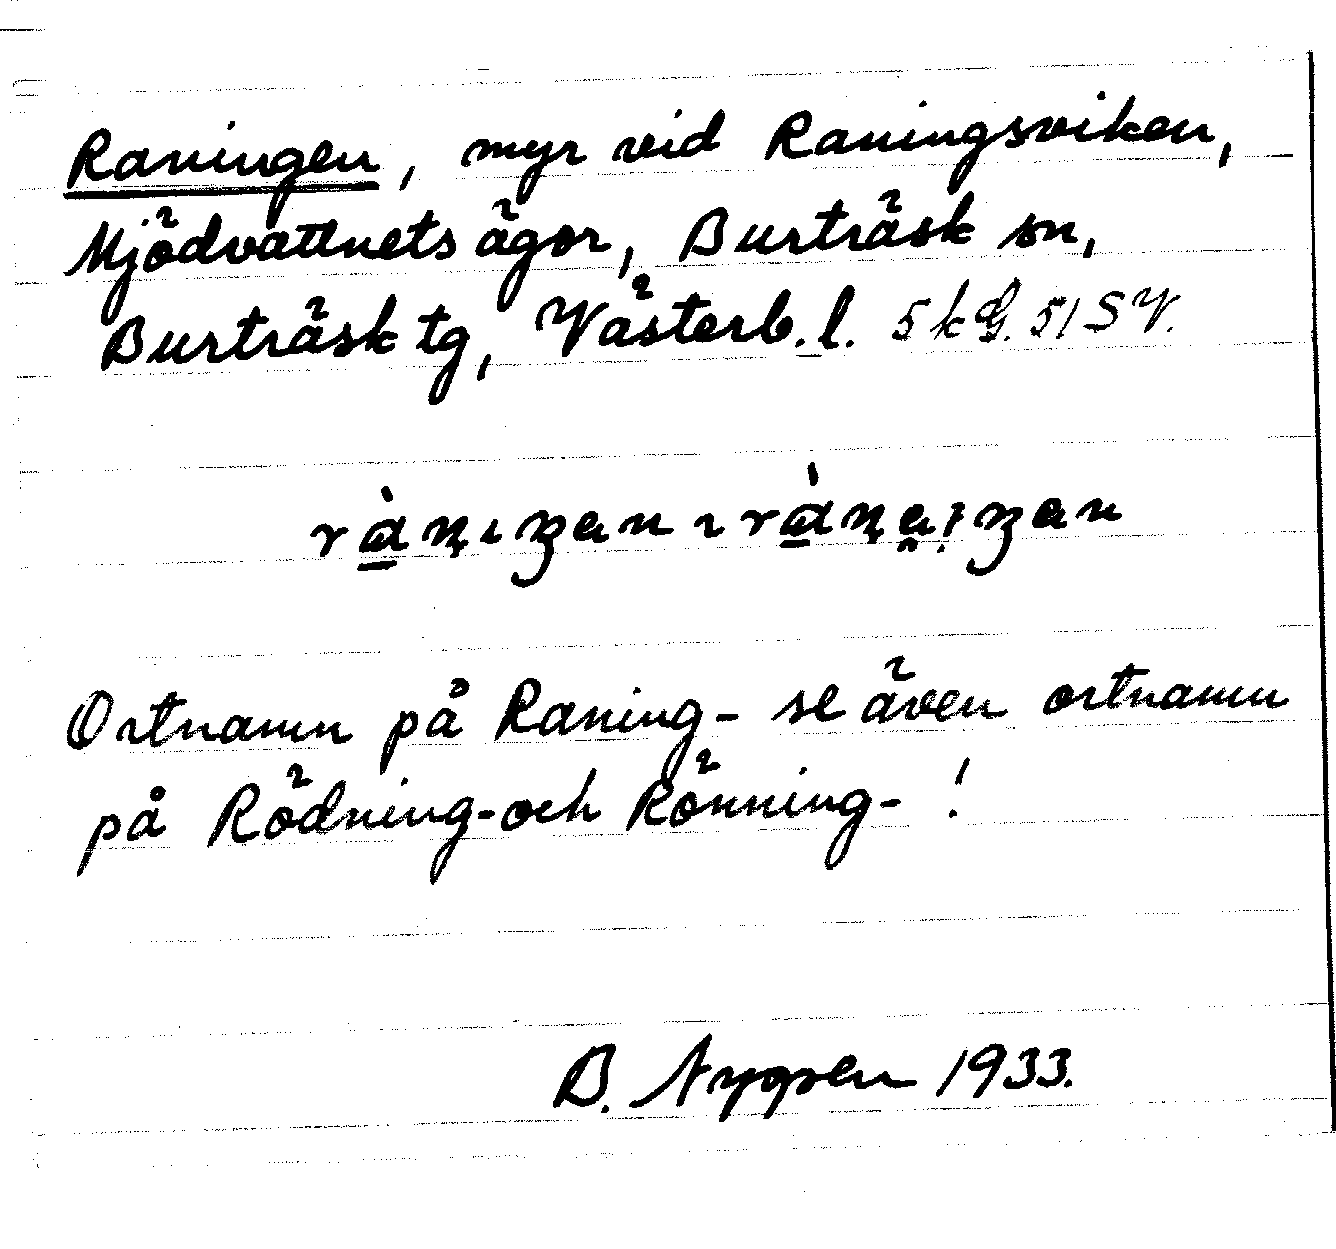 Raningen, myr vid Raningsviken,
Mjödvattnets ägor, Burträsk sn,
Burträsk tg, Västerb. l. 5 kG. 51 SV.
Ortnamn på Raning- se även ortnamn
på Rödning- och Rönning- !
B. Nygren 1933.